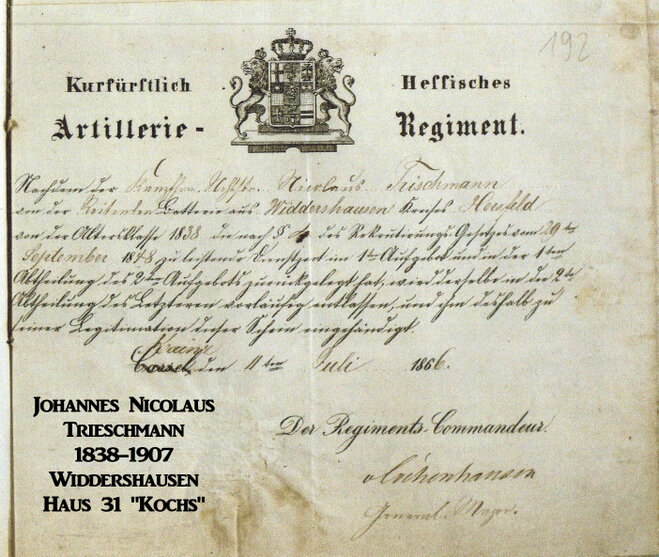 192
Kurfürstlich Hessisches
Artillerie - Regiment.
Nachdem der Nicolaus Trischmann
von der Reitenden Batterie aus Widdershausen Kreises Hersfeld
von der Altersklasse 1838 die nach § des Rekrutirungs-Gesetzes vom 29ten
September 1848 zu leistende Dienstzeit im 1ten Aufgebot und in der 1ten
Abtheilung des 2ten Aufgebots zurückgelegt hat, wird derselbe in die 2te
Abtheilung des Letzteren vorläufig entlassen, und ihm deshalb zu
seiner Legitimation dieser Schein eingehändigt.
Mainz
Cassel, den 11ten Juli 1866.
Der Regiments-Commandeur.
General Major.
Johannes Nicolaus
Trieschmann
1838–1907
Widdershausen
Haus 31 "Kochs"